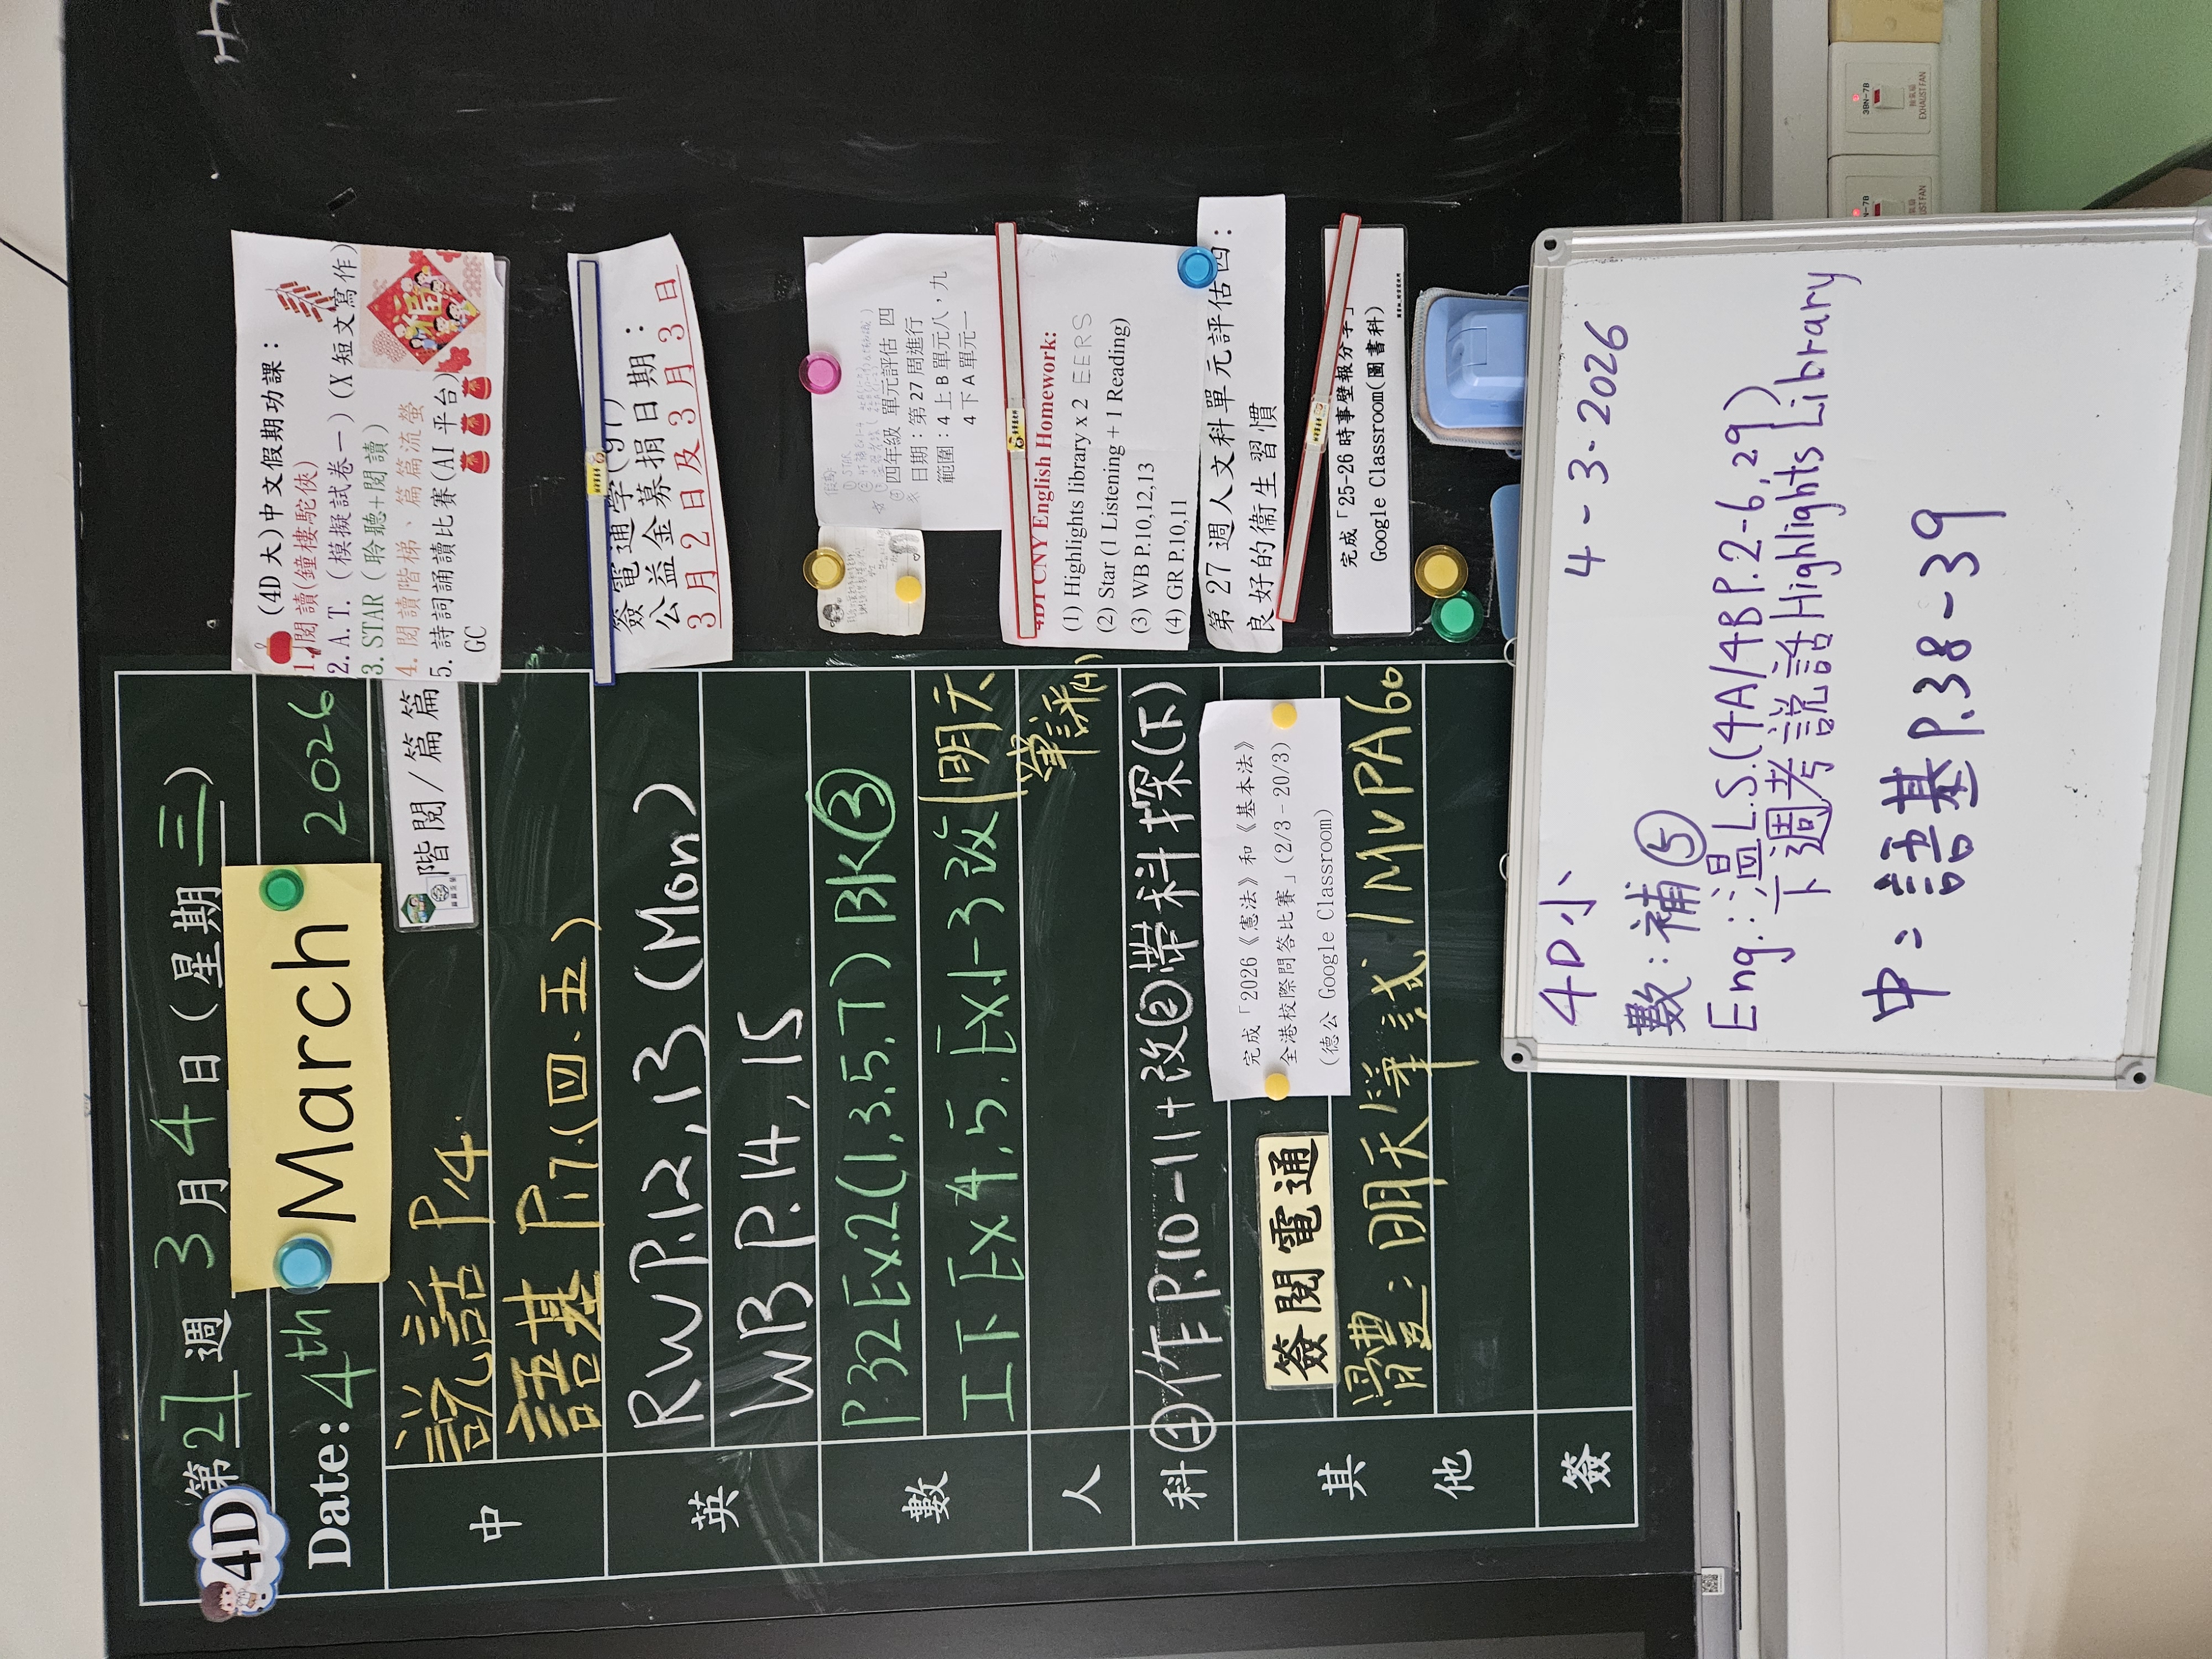 4D
第27週 3月4日(星期三)
Date: 4th March 2026
中
說話 P.14.
階閱/篇篇
語基 P.17.(四、五)
英
RWP.12,13 (Mon)
WB P.14,15
數
P.32 Ex.2(1,3,5,7) BK③
工下 Ex 4,5, Ex.1-3 改
明天
筆評(4)
人
科
①作P.10-11+改②帶科探(下)
其他
簽閱電通
完成「2026《憲法》和《基本法》
全港校際問答比賽」(2/3-20/3)
(德公 Google Classroom)
體:明天筆試/MVPA60
簽
(4D大)中文假期功課:
1.閱讀(鐘樓駝俠)
2. A.T. (模擬試卷一) (X 短文寫作)
3. STAR (聆聽+閱讀)
4. 閱讀階梯、篇篇流螢
5. 詩詞誦讀比賽(AI 平台)
GC
福
簽電通學(97)
公益金募捐日期:
3月2日及3月3日
四年級 單元評估 四
日期:第27周進行
範圍:4上B單元八,九
4下A單元一
4D1 CNY English Homework:
(1) Highlights library x 2 EERS
(2) Star (1 Listening + 1 Reading)
(3) WB P.10,12,13
(4) GR P.10,11
第 27 週人文科單元評估四:
良好的衞生習慣
完成「25-26 時事壁報分享」
Google Classroom(圖書科)
4D小 4-3-2026
數:補⑤
Eng.:溫L.S.(4A/4B P.2-6,29)
下週考說話 Highlights Library
中:語基P.38-39
3BN-7B
抽氣扇
EXHAUST FAN